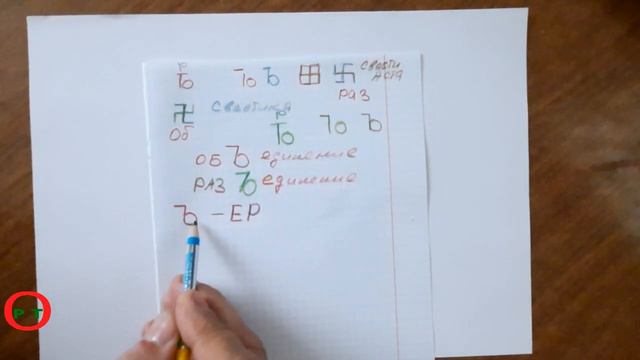 Ъ Ъ Ъ 卍 СВАСТИ
РАЗ
ОБ СВАСТИКА
Ъ Ъ Ъ
ОБ Ъ единение
РАЗ Ъ единение
Ъ – ЕР
РТ